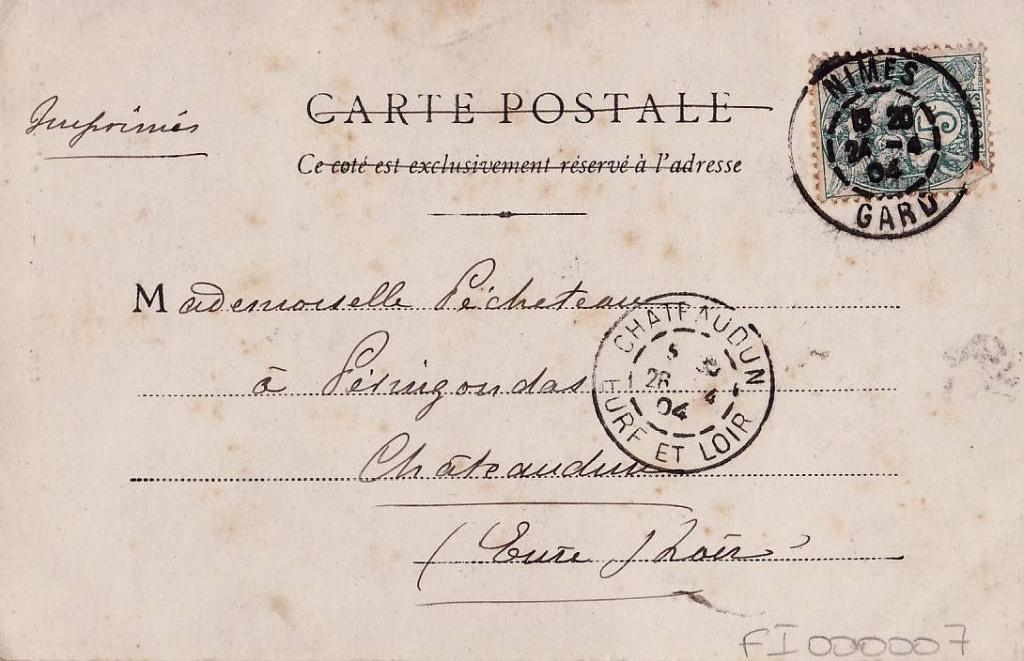 Imprimés
CARTE POSTALE
Ce coté est exclusivement réservé à l'adresse
NIMES
13 20
24 -4
04
GARD
Mademoiselle Pécheteau
à Péringondas
Châteaudun
(Eure Loir)
CHATEAUDUN
5
26 4
04
EURE ET LOIR
5
FI000007